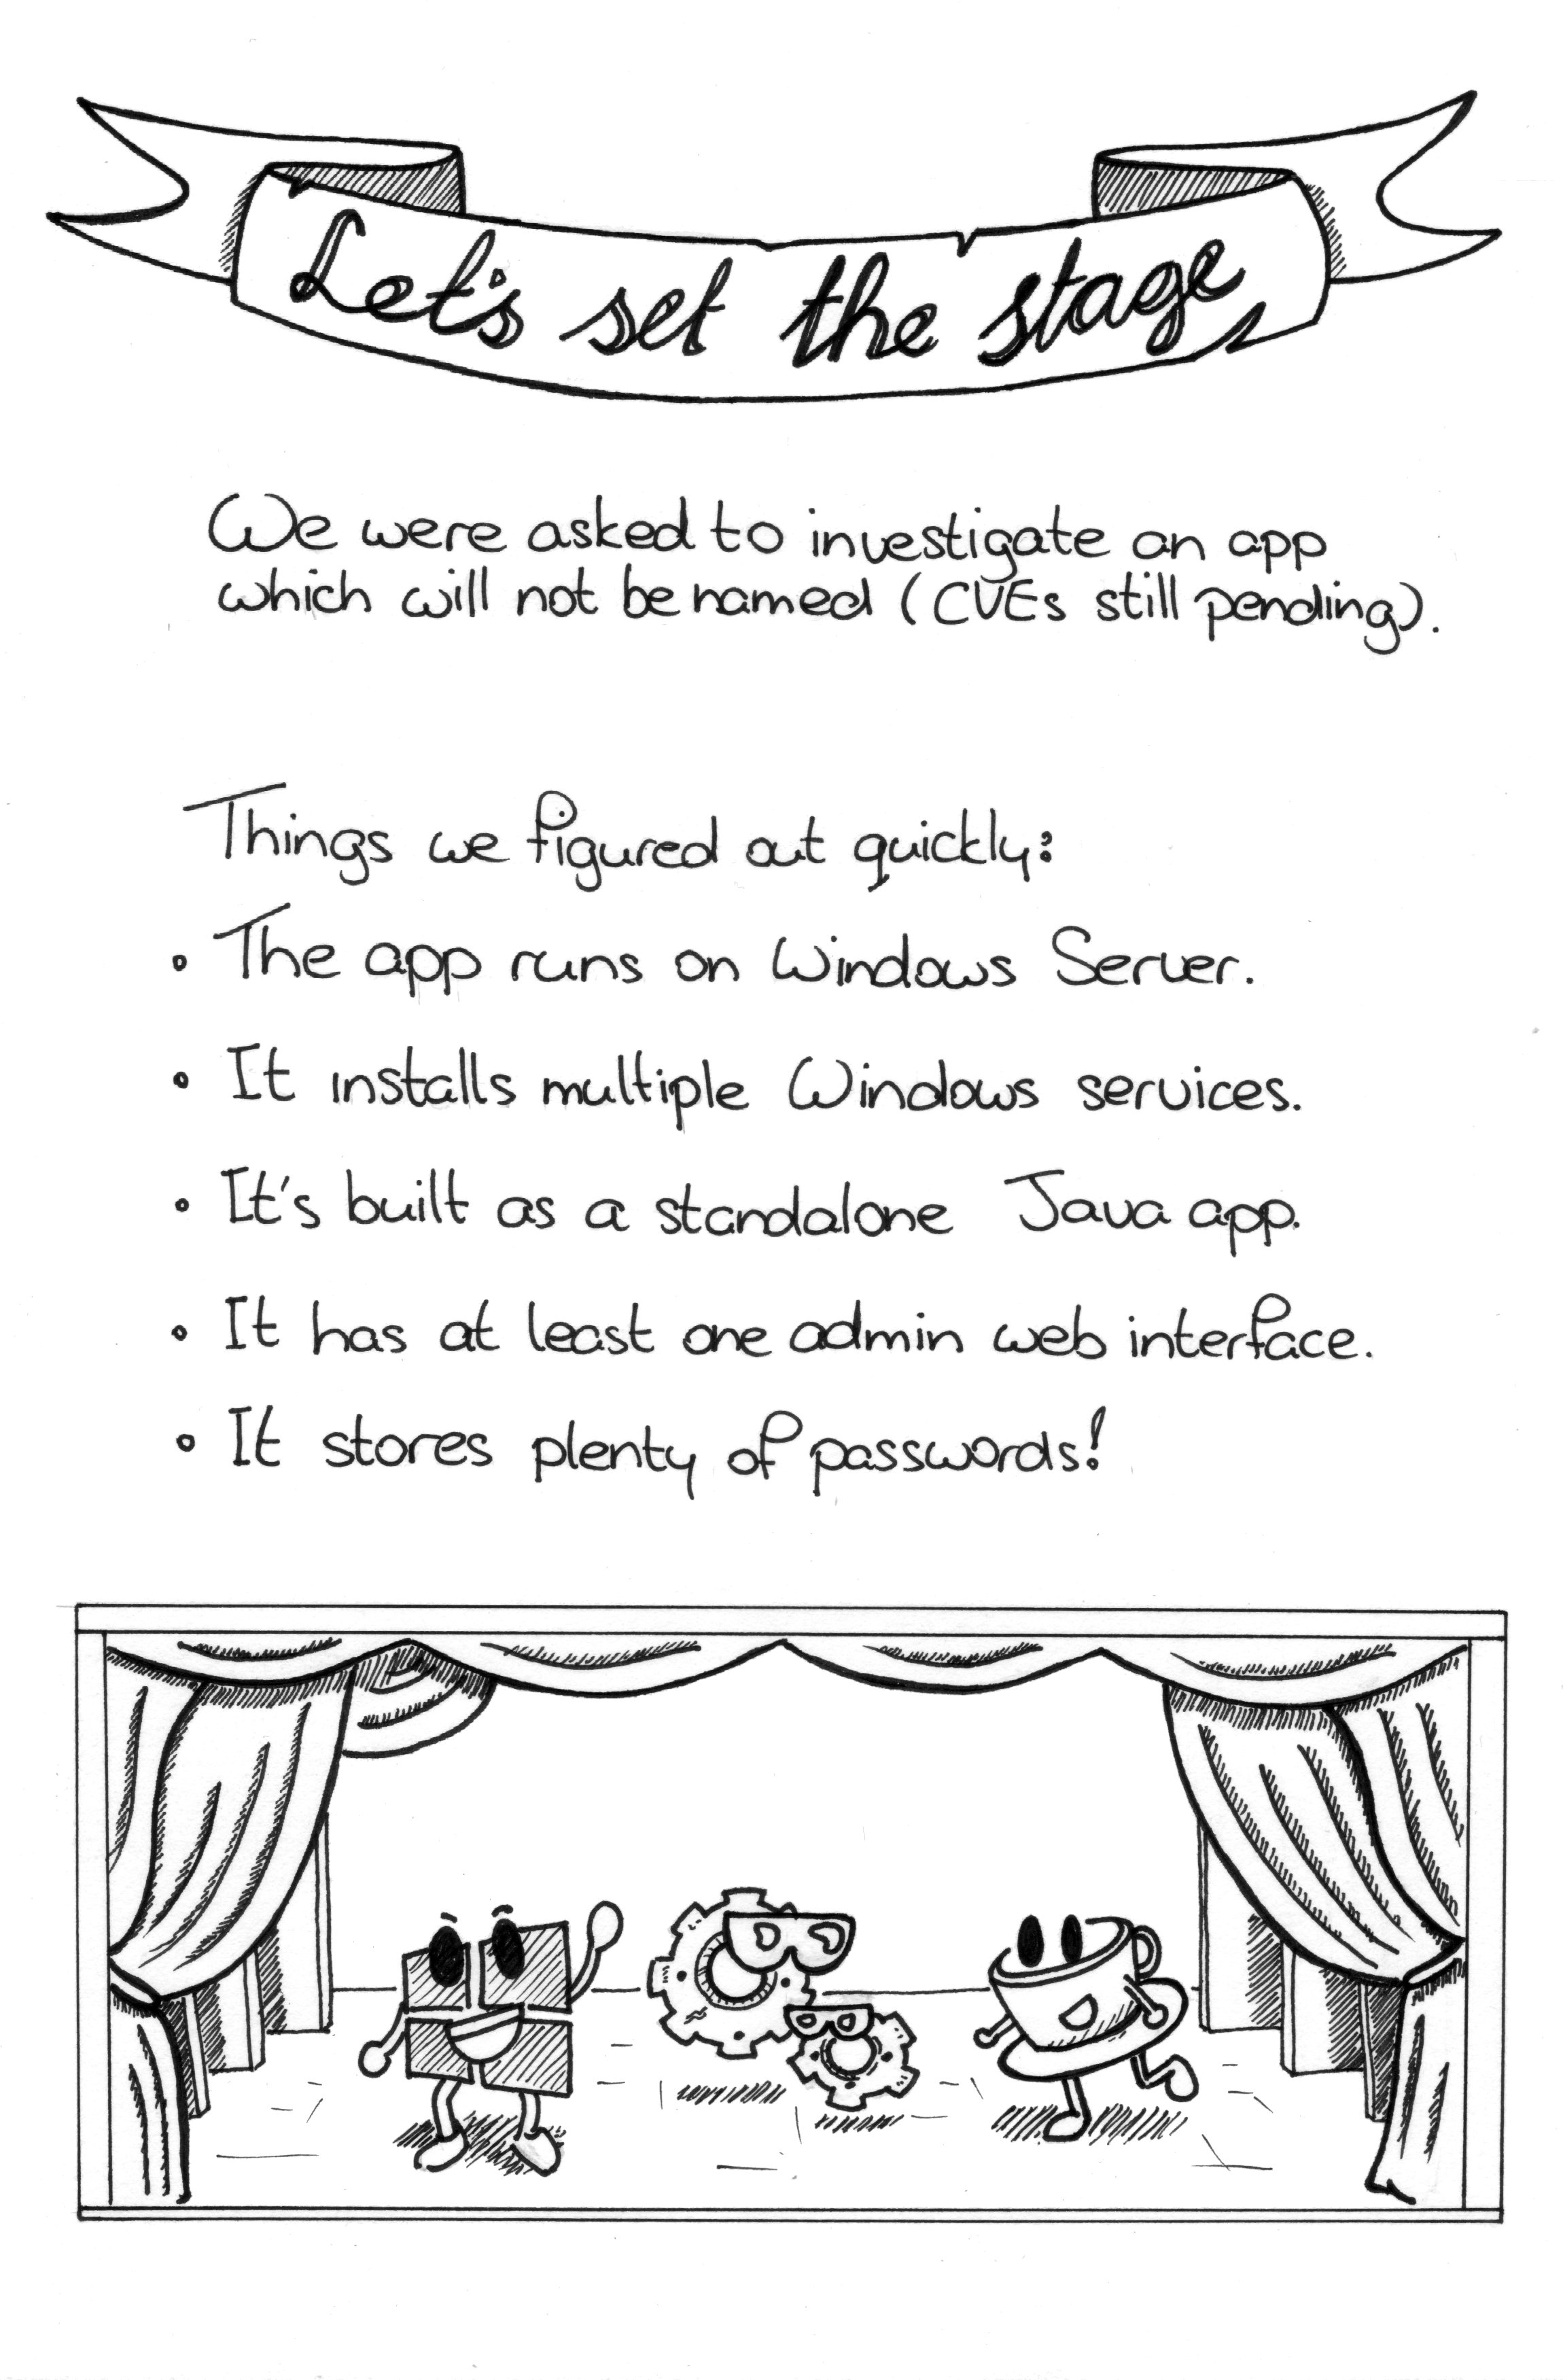 Let's set the stage
We were asked to investigate an app
which will not be named (CVEs still pending).
Things we figured out quickly:
• The app runs on Windows Server.
• It installs multiple Windows services.
• It's built as a standalone Java app.
• It has at least one admin web interface.
• It stores plenty of passwords!